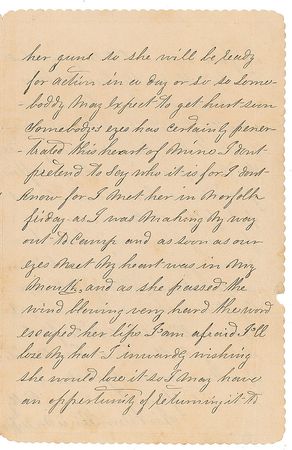 her guns so she will be ready
for action in a day or so so some-
-boddy May Expect to get hurt soon
Somebodys eyes has certainly pener-
-trated this heart of Mine I dont
pretend to Say who it is for I dont
Know for I Met her in Norfolk
friday as I was Making My way
out to Camp and as soon as our
eyes Meet My heart was in My
Mouth, and as she passed the
wind blowing very hard the word
escaped her lips I am afraid I'll
lose My hat I inwardly wishing
she would lose it so I May have
an oppertunity of returning it to